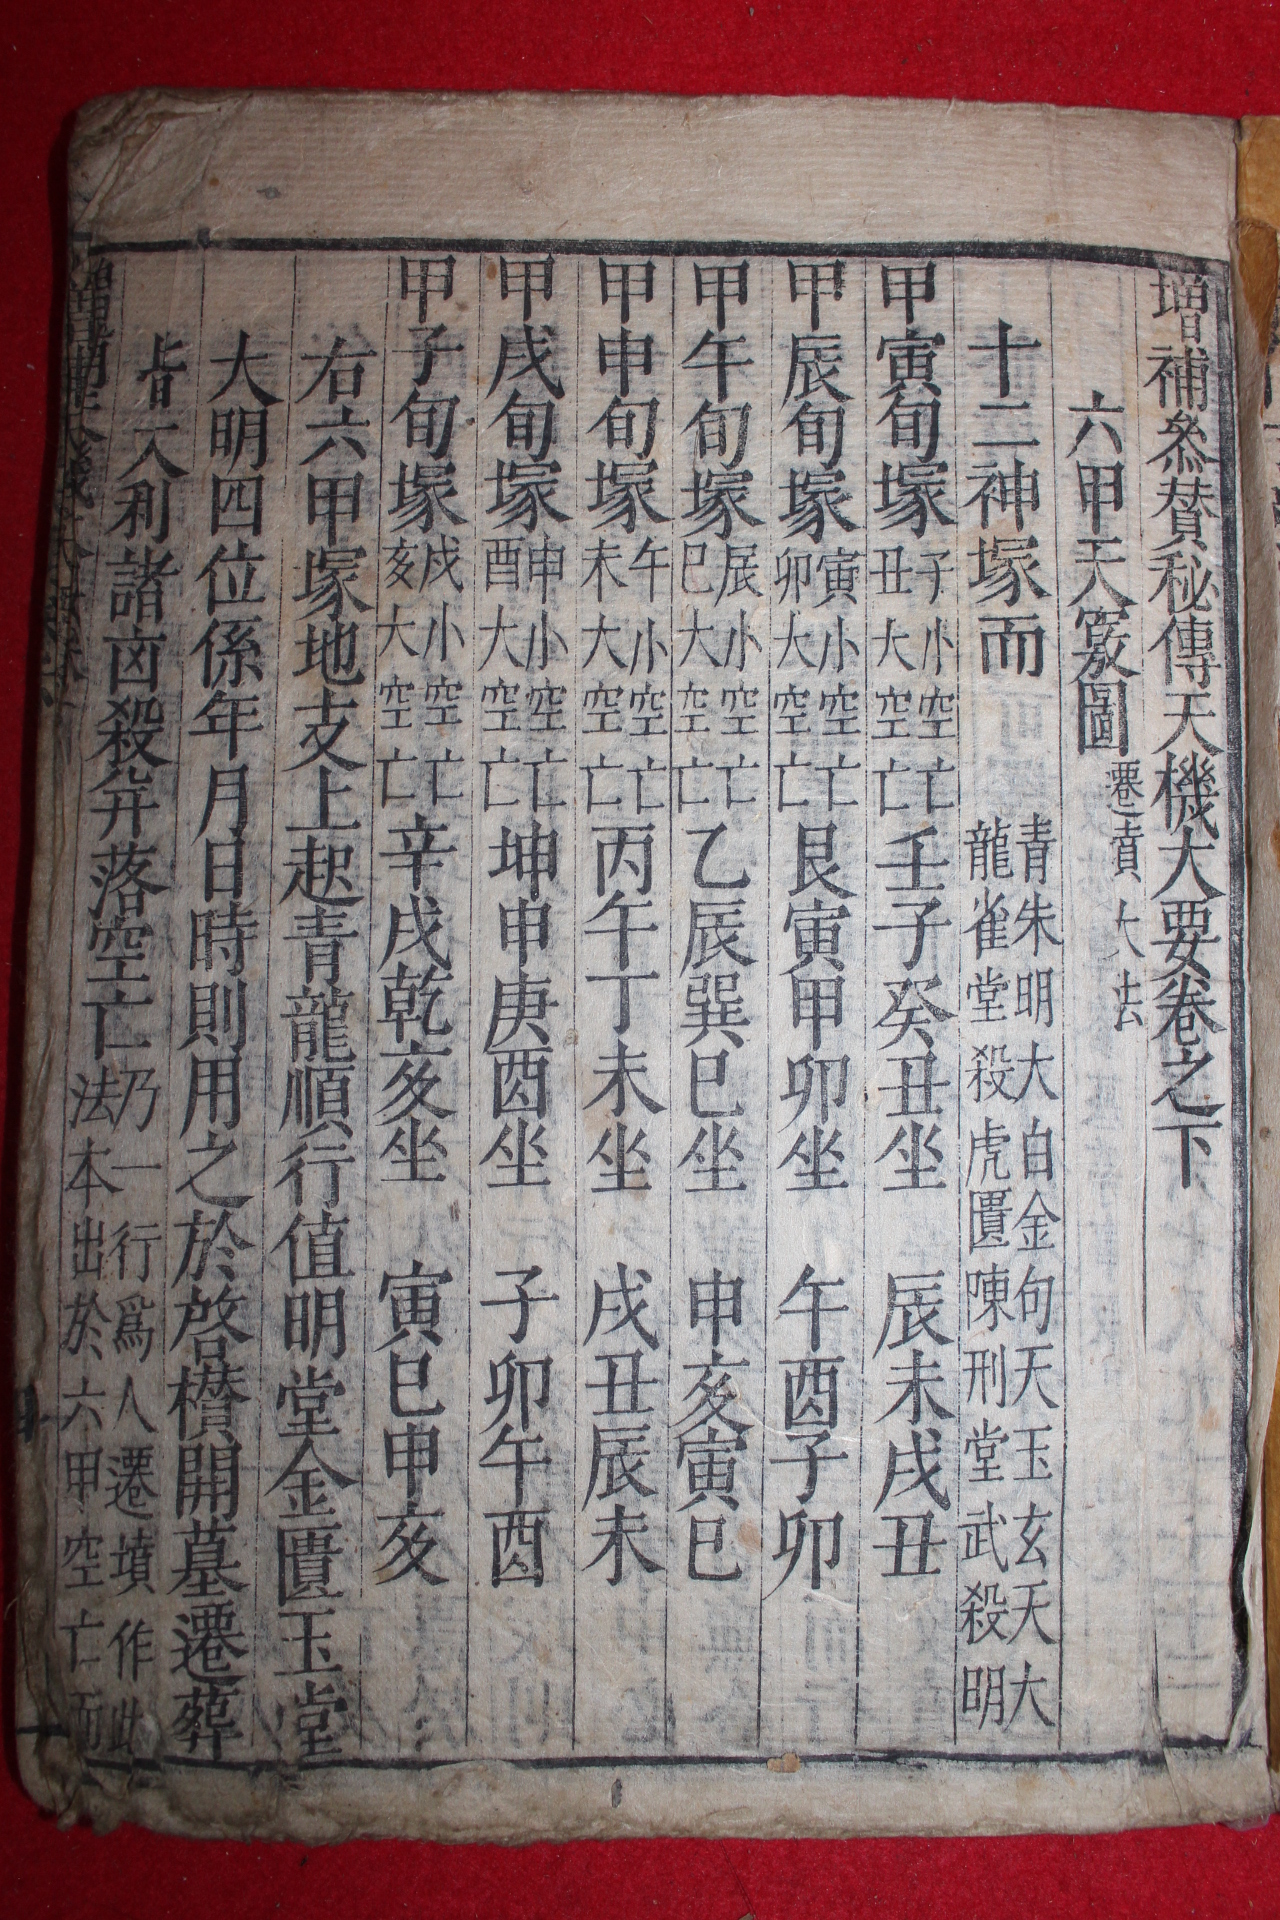 增補叅贊秘傳天機大要卷之下
六甲天竅圖 遷墳大法
十二神塚而 青朱明大白金句天玉玄天大
龍雀堂殺虎匱陳刑堂武殺明
甲寅旬塚 子小空亡 丑大空亡 壬子癸丑坐 辰未戌丑
甲辰旬塚 寅小空亡 卯大空亡 艮寅甲卯坐 午酉子卯
甲午旬塚 辰小空亡 巳大空亡 乙辰巽巳坐 申亥寅巳
甲申旬塚 午小空亡 未大空亡 丙午丁未坐 戌丑辰未
甲戌旬塚 申小空亡 酉大空亡 坤申庚酉坐 子卯午酉
甲子旬塚 戌小空亡 亥大空亡 辛戌乾亥坐 寅巳申亥
右六甲塚地支上起青龍順行值明堂金匱玉堂
大明四位係年月日時則用之於啓櫕開墓遷葬
皆大利諸凶殺并落空亡 乃一行爲人遷墳作此
法本出於六甲空亡而